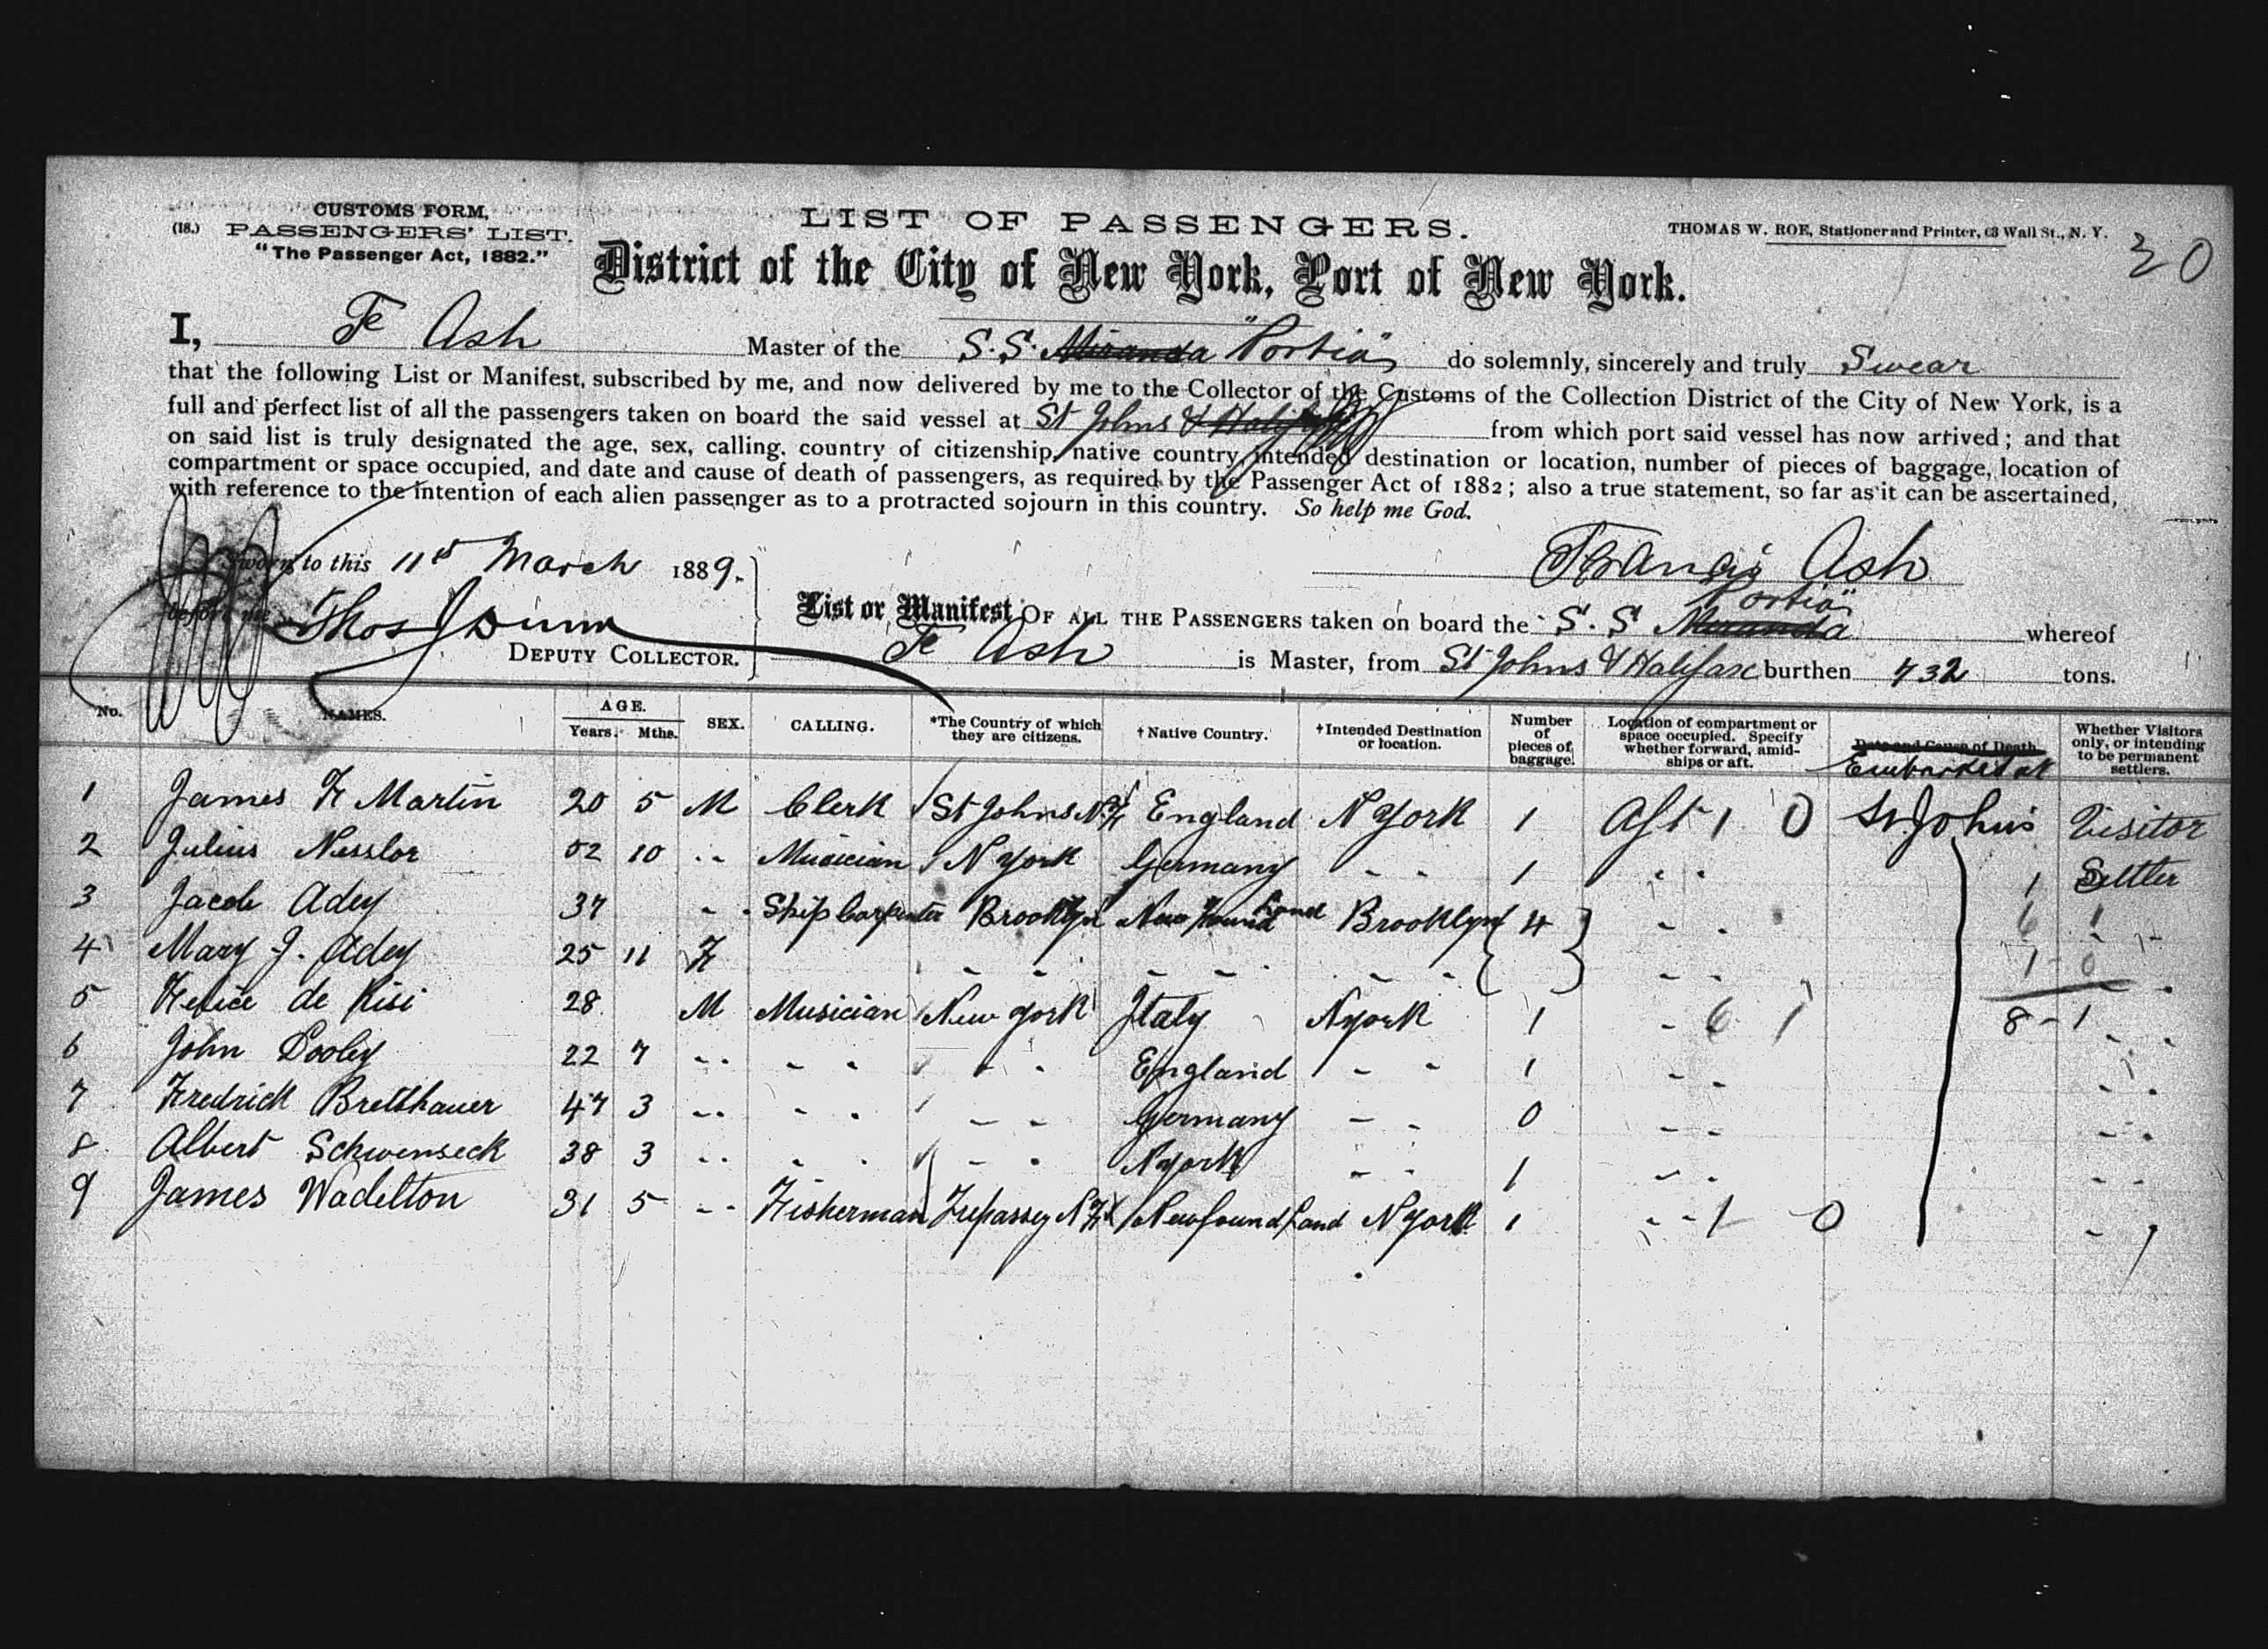 CUSTOMS FORM,
(18.) PASSENGERS' LIST.
"The Passenger Act, 1882."
LIST OF PASSENGERS.
THOMAS W. ROE, Stationer and Printer, 63 Wall St., N. Y.
30
District of the City of New York, Port of New York.
I, Fc Ash Master of the S.S. Miranda "Portia" do solemnly, sincerely and truly Swear
that the following List or Manifest, subscribed by me, and now delivered by me to the Collector of the Customs of the Collection District of the City of New York, is a
full and perfect list of all the passengers taken on board the said vessel at St Johns & Halifax from which port said vessel has now arrived; and that
on said list is truly designated the age, sex, calling, country of citizenship, native country intended destination or location, number of pieces of baggage, location of
compartment or space occupied, and date and cause of death of passengers, as required by the Passenger Act of 1882; also a true statement, so far as it can be ascertained,
with reference to the intention of each alien passenger as to a protracted sojourn in this country. So help me God.
Sworn to this 11th March 1889.
Francis Ash
before me Thos J Dunn
DEPUTY COLLECTOR.
List or Manifest OF ALL THE PASSENGERS taken on board the S. S Miranda "Portia" whereof
Fc Ash is Master, from St Johns & Halifax burthen 732 tons.
No. NAMES. AGE. Years. Mths. SEX. CALLING. *The Country of which they are citizens. †Native Country. †Intended Destination or location. Number of pieces of baggage. Location of compartment or space occupied. Specify whether forward, amidships or aft. Date and Cause of Death Embarked at Whether Visitors only, or intending to be permanent settlers.
1 James F Martin 20 5 M Clerk St Johns N.F England N York 1 Aft 1 0 St. John's Visitor
2 Julius Nesslor 52 10 " Musician N York Germany " " 1 " " 1 0 Settler
3 Jacob Adey 37 " Ship Carpenter Brooklyn New foundland Brooklyn 4 " " 6 1 " "
4 Mary J. Adey 25 11 F " " " " " " " " 1 - 0 " "
5 Felice de Risi 28 M Musician New York Italy N York 1 " 6 1 8 - 1 " "
6 John Pooley 22 7 " " " " " England " " 1 " " " "
7 Fredrick Bretthauer 47 3 " " " " " Germany " " 0 " " " "
8 Albert Schwenseck 38 3 " " " " " N York " " 1 " " " "
9 James Wadelton 31 5 " Fisherman Trepassey N.F Newfoundland N York 1 " " 1 0 " "